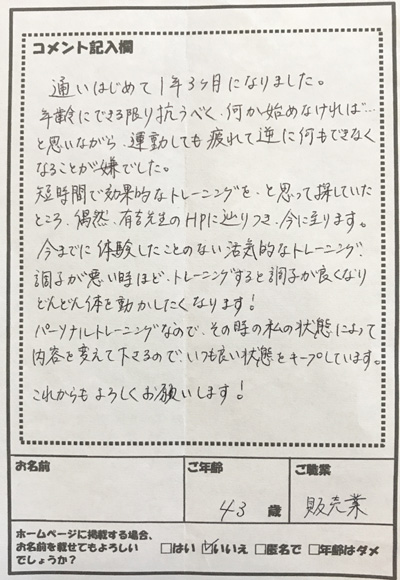 コメント記入欄
通いはじめて1年3ヶ月になりました。
年齢にできる限り抗うべく、何か始めなければ…
と思いながら、運動しても疲れて逆に何もできなく
なることが嫌でした。
短時間で効果的なトレーニングを、と思って探していた
ところ、偶然、有吉先生のHPに辿りつき、今に至ります。
今までに体験したことのない活気的なトレーニング!
調子が悪い時ほど、トレーニングすると調子が良くなり
どんどん体を動かしたくなります!
パーソナルトレーニングなので、その時の私の状態によって
内容を変えて下さるので、いつも良い状態をキープしています。
これからもよろしくお願いします!
お名前
ご年齢
ご職業
43 歳
販売業
ホームページに掲載する場合、
お名前を載せてもよろしい
でしょうか?
□はい ☑いいえ □匿名で □年齢はダメ